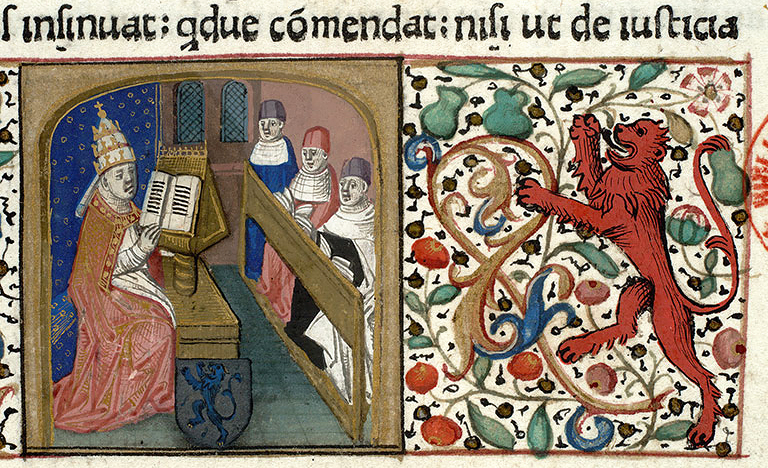 s insinuat: qdue cōmendat: nisi ut de iusticia